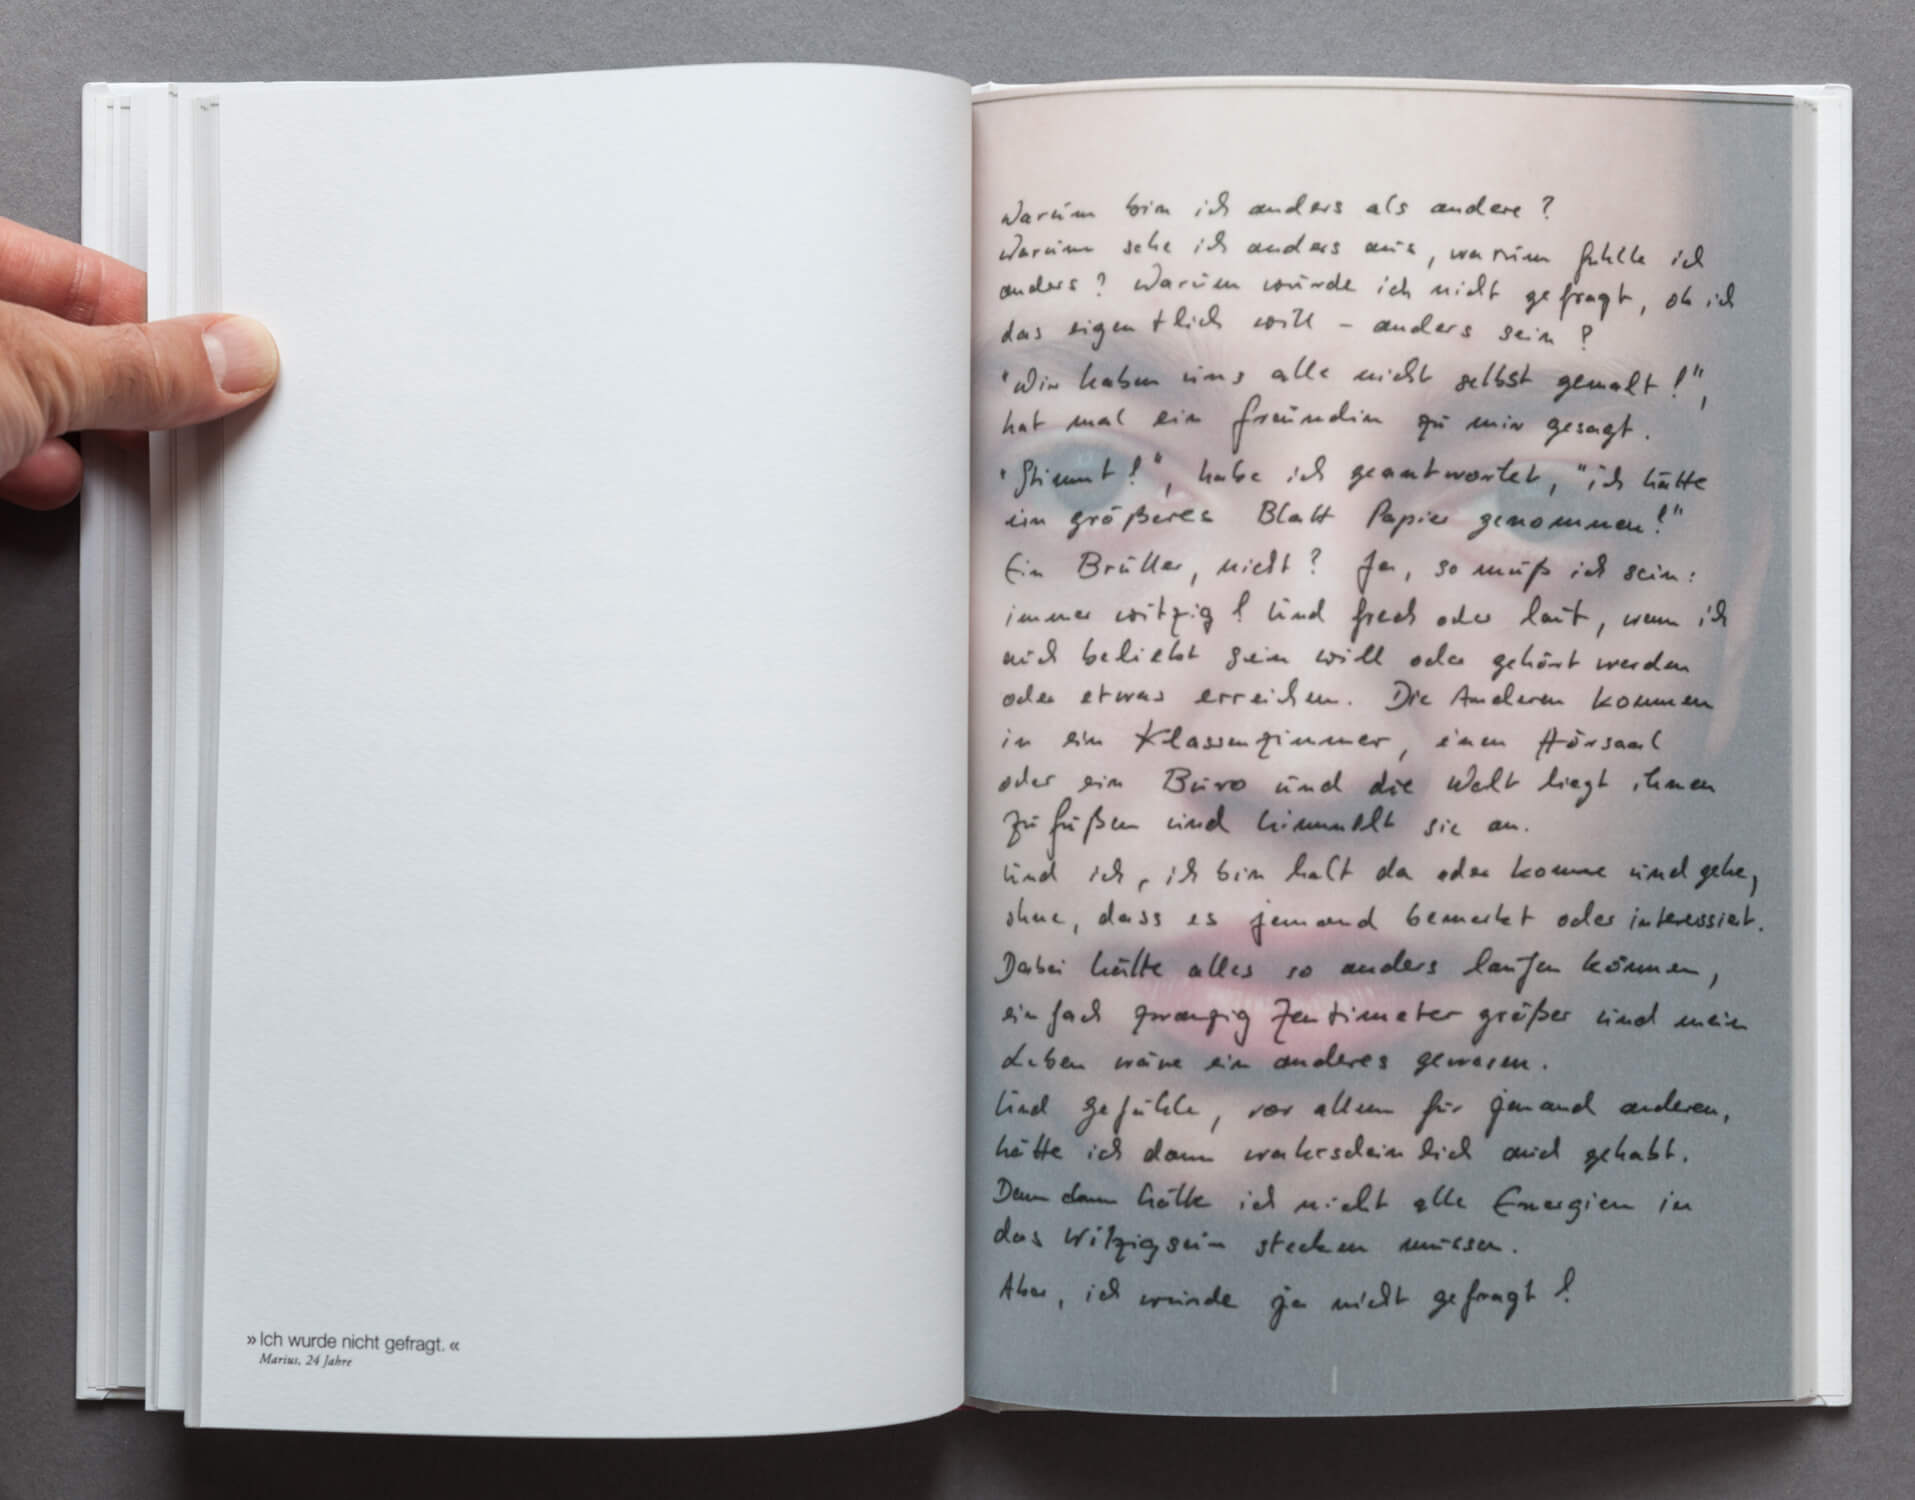 »Ich wurde nicht gefragt.«
Marius, 24 Jahre
Warum bin ich anders als andere?
Warum sehe ich anders aus, warum fühle ich
anders? Warum wurde ich nicht gefragt, ob ich
das eigentlich will – anders sein?
"Wir haben uns alle nicht selbst gemalt!",
hat mal ein Freundin zu mir gesagt.
"Stimmt!", habe ich geantwortet, "ich hätte
ein größeres Blatt Papier genommen!"
Ein Brüller, nicht? Ja, so muß ich sein:
immer witzig! Und frech oder laut, wenn ich
auch beliebt sein will oder gehört werden
oder etwas erreichen. Die Anderen kommen
in ein Klassenzimmer, einen Hörsaal
oder ein Büro und die Welt liegt ihnen
zu Füßen und himmelt sie an.
Und ich, ich bin halt da oder komme und gehe,
ohne, dass es jemand bemerkt oder interessiert.
Dabei hätte alles so anders laufen können,
einfach zwanzig Zentimeter größer und mein
Leben wäre ein anderes gewesen.
Und Gefühle, vor allem für jemand anderen,
hätte ich dann wahrscheinlich auch gehabt.
Denn dann hätte ich nicht alle Energien in
das Witzigsein stecken müssen.
Aber, ich wurde ja nicht gefragt!